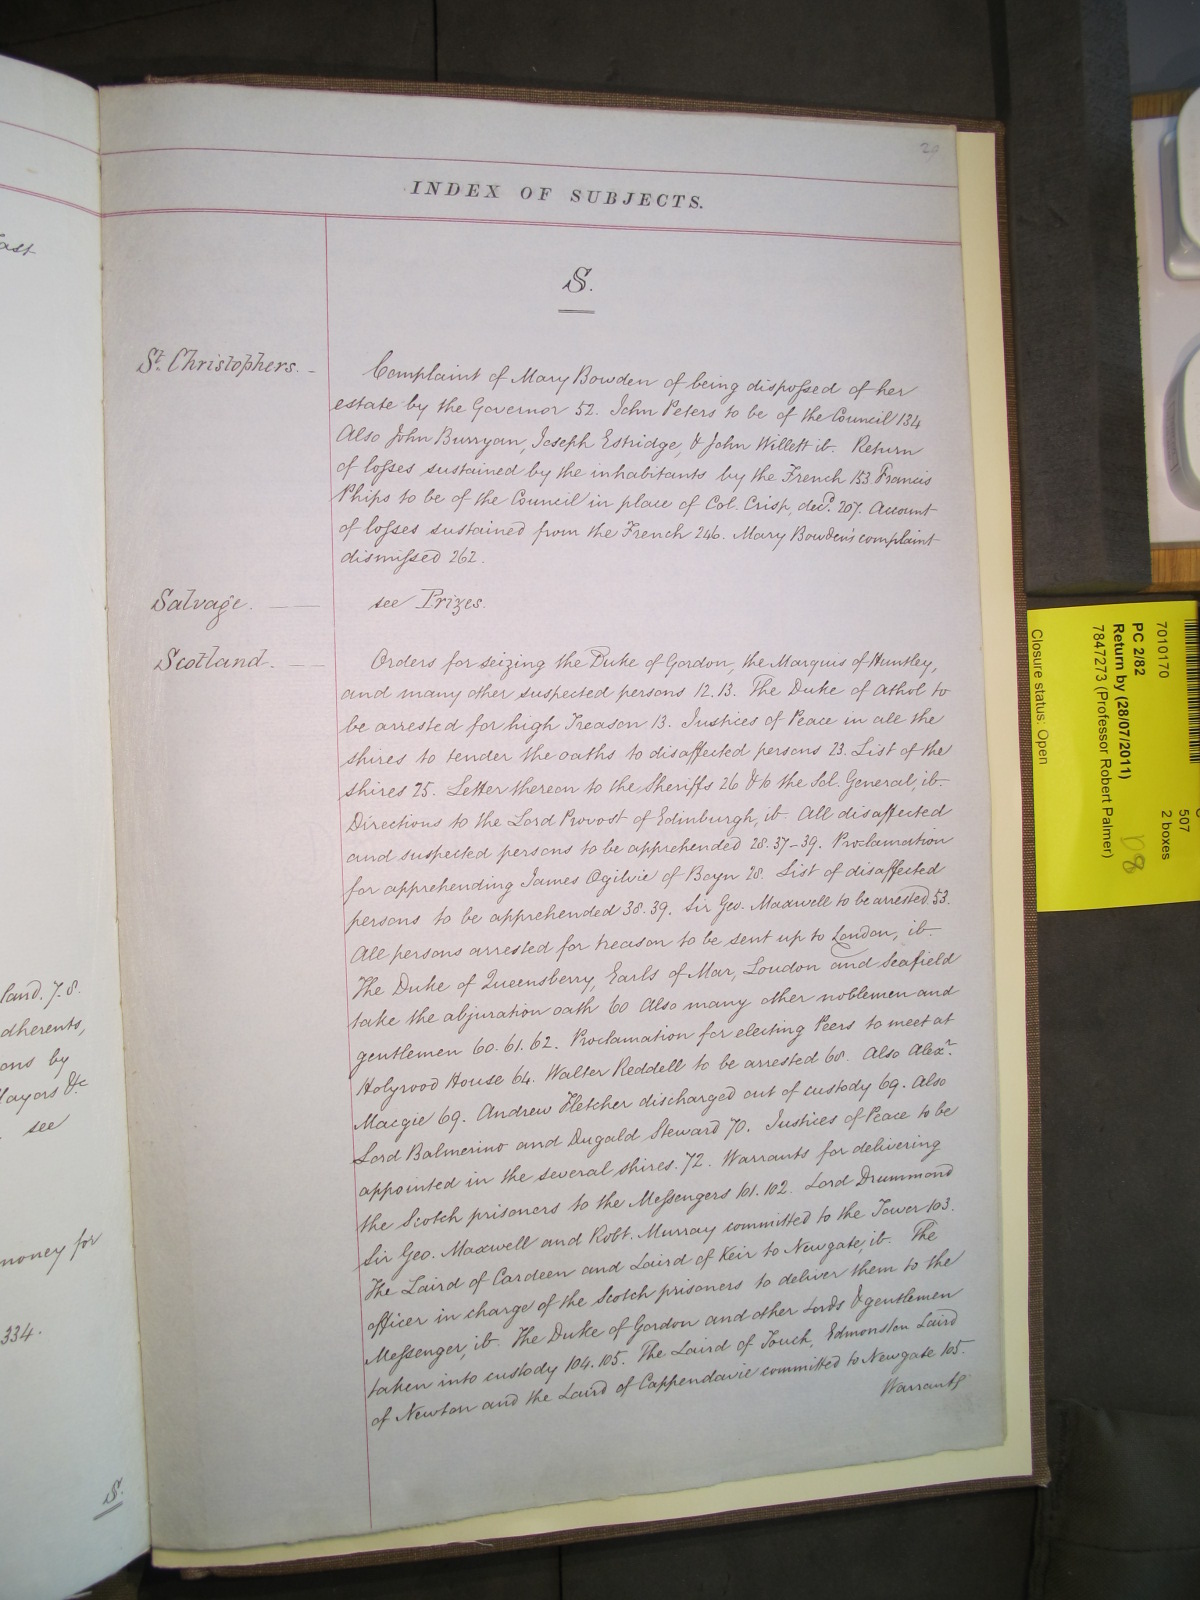 20
INDEX OF SUBJECTS.
S.
St. Christophers. - Complaint of Mary Bowden of being dispossed of her
estate by the Governor 52. John Peters to be of the Council 134
Also John Burryan, Joseph Estridge, & John Willett ib. Return
of losses sustained by the inhabitants by the French 153. Francis
Phips to be of the Council in place of Col. Crisp, decd. 207. Account
of losses sustained from the French 246. Mary Bowden's complaint
dismissed 262.
Salvage. see Prizes.
Scotland. Orders for seizing the Duke of Gordon, the Marquis of Huntley,
and many other suspected persons 12.13. The Duke of Athol to
be arrested for high Treason 13. Justices of Peace in all the
shires to tender the oaths to disaffected persons 23. List of the
shires 25. Letter thereon to the Sheriffs 26 & to the Sol. General, ib.
Directions to the Lord Provost of Edinburgh, ib. All disaffected
and suspected persons to be apprehended 28.37-39. Proclamation
for apprehending James Ogilvie of Boyn 28. List of disaffected
persons to be apprehended 38.39. Sir Geo. Maxwell to be arrested 53.
All persons arrested for treason to be sent up to London, ib.
The Duke of Queensberry, Earls of Mar, Loudon and Seafield
take the abjuration oath 60 Also many other noblemen and
gentlemen 60.61.62. Proclamation for electing Peers to meet at
Holyrood House 64. Walter Reddell to be arrested 68. Also Alexr.
Macgie 69. Andrew Fletcher discharged out of custody 69. Also
Lord Balmerino and Dugald Steward 70. Justices of Peace to be
appointed in the several shires. 72. Warrants for delivering
the Scotch prisoners to the Messengers 101.102. Lord Drummond
Sir Geo. Maxwell and Robt. Murray committed to the Tower 103.
The Laird of Cardeen and Laird of Keir to Newgate, ib. The
officer in charge of the Scotch prisoners to deliver them to the
Messenger, ib. The Duke of Gordon and other Lords & gentlemen
taken into custody 104.105. The Laird of Touch, Edmonston Laird
of Newton and the Laird of Cappendavie committed to Newgate 105.
Warrants
east
land. 7.8.
dherents,
ons by
ayors &c
see
money for
334.
S.
7010170
507
PC 2/82
2 boxes
Return by (28/07/2011)
7847273 (Professor Robert Palmer)
D8
Closure status: Open